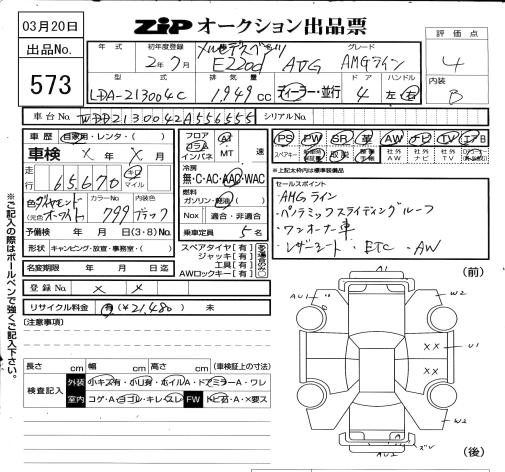 03月20日
ZIP オークション出品票
出品No.
573
年式 初年度登録 グレード
2年7月 メルセデスベンツ E220d AVG AMGライン
型式 排気量 ドア ハンドル
LDA-213004C 1,949cc ディーラー・並行 4 左 右
評価点
4
内装
B
車台No. WDD2130042A556555 シリアルNo.
車歴 自家用・レンタ・( )
車検 × 年 × 月
走行 65,670 キロ マイル
色 ダイヤモンドホワイト
(元色)
カラーNo 799
内装色 ブラック
予備検 年 月 日 (3・8)No.
形状 キャンピング・放宣・事務室・( )
名変期限 年 月 日迄
登録No. × ×
リサイクル料金 有(¥21,480) 未
フロア コラム インパネ AT MT 速
冷房
無・C・AC・AAC・WAC
燃料
ガソリン・軽油・( )
Nox 適合・非適合
乗車定員 5名
スペアタイヤ [有]
ジャッキ [有]
工具 [有]
AWロックキー [有]
PS PW SR 革 AW ナビ TV エアB
スペアキー 取説 社外AW 社外ナビ 社外TV
※上記太枠は標準装備品
セールスポイント
・AMGライン
・パノラミックスライディングルーフ
・ワンオーナー車
・レザーシート・ETC・AW
[注意事項]
長さ cm 幅 cm 高さ cm (車検証上の寸法)
検査記入 外装 小キズ有・小凹有・ホイルA・ドアミラーA・ワレ
室内 コゲ・A・ヨゴレ・キレ・スレ FW トビ石・A・×要ス
※ご記入の際はボールペンで強くご記入下さい。
(前)
A1
AU1
W2
U1
××
××
W2
AU2
(後)